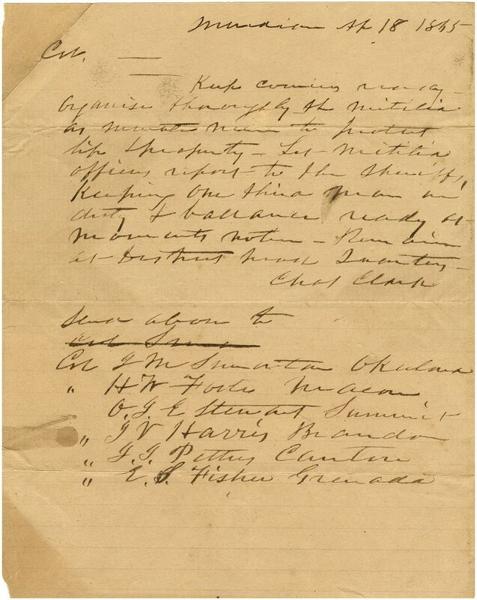 Meridian Ap 18 1865
Col. —
Keep couriers ready -
Organise thoroughly the militia
as minute men to protect
life & property - Let militia
officers report to the sheriff,
Keeping One third men on
duty & ballance ready at
moments notice - Remain
at District Head Quarters -
Chas Clark
Send above to
Col J M Okalona
" H W Foote Macon
O. J. E Stewart Summit
" J V Harris Brandon
" J. J. Pettus Canton
" E. S. Fisher Grenada